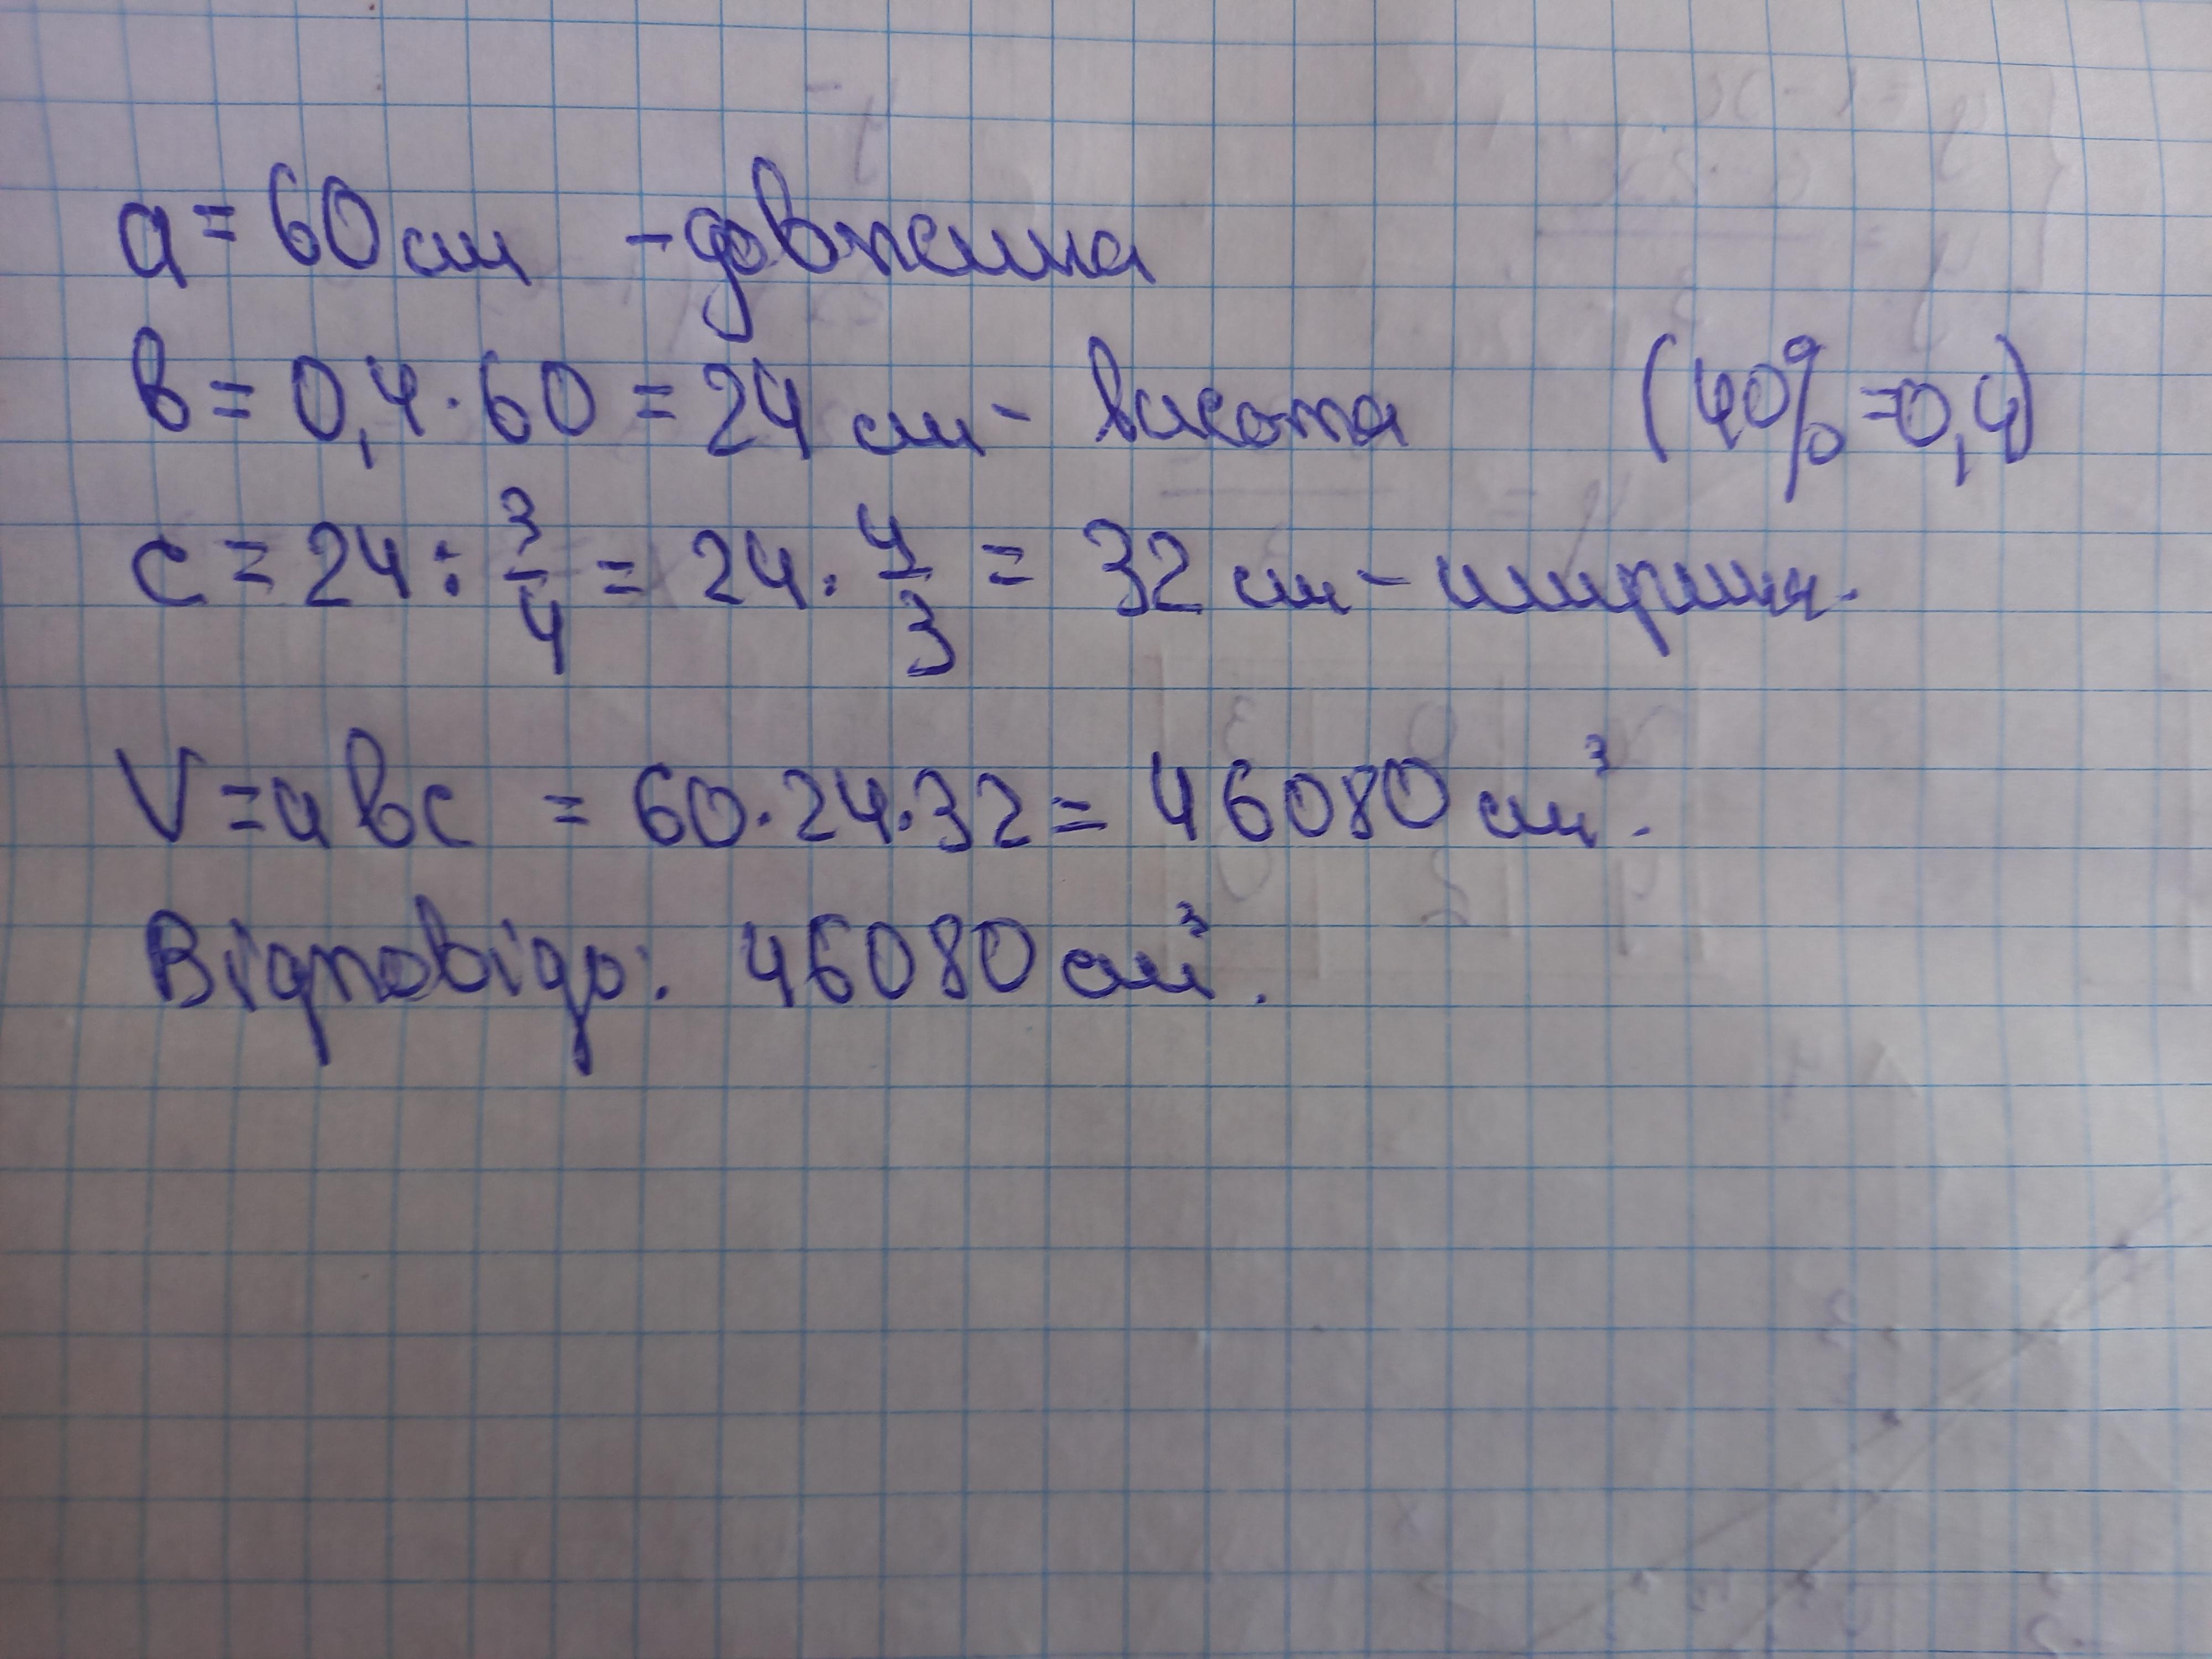 a = 60 см - довжина
в = 0,4 · 60 = 24 см - висота (40% = 0,4)
c = 24 : 3/4 = 24 · 4/3 = 32 см - ширина.
V = aвc = 60 · 24 · 32 = 46080 см³.
Відповідь: 46080 см³.